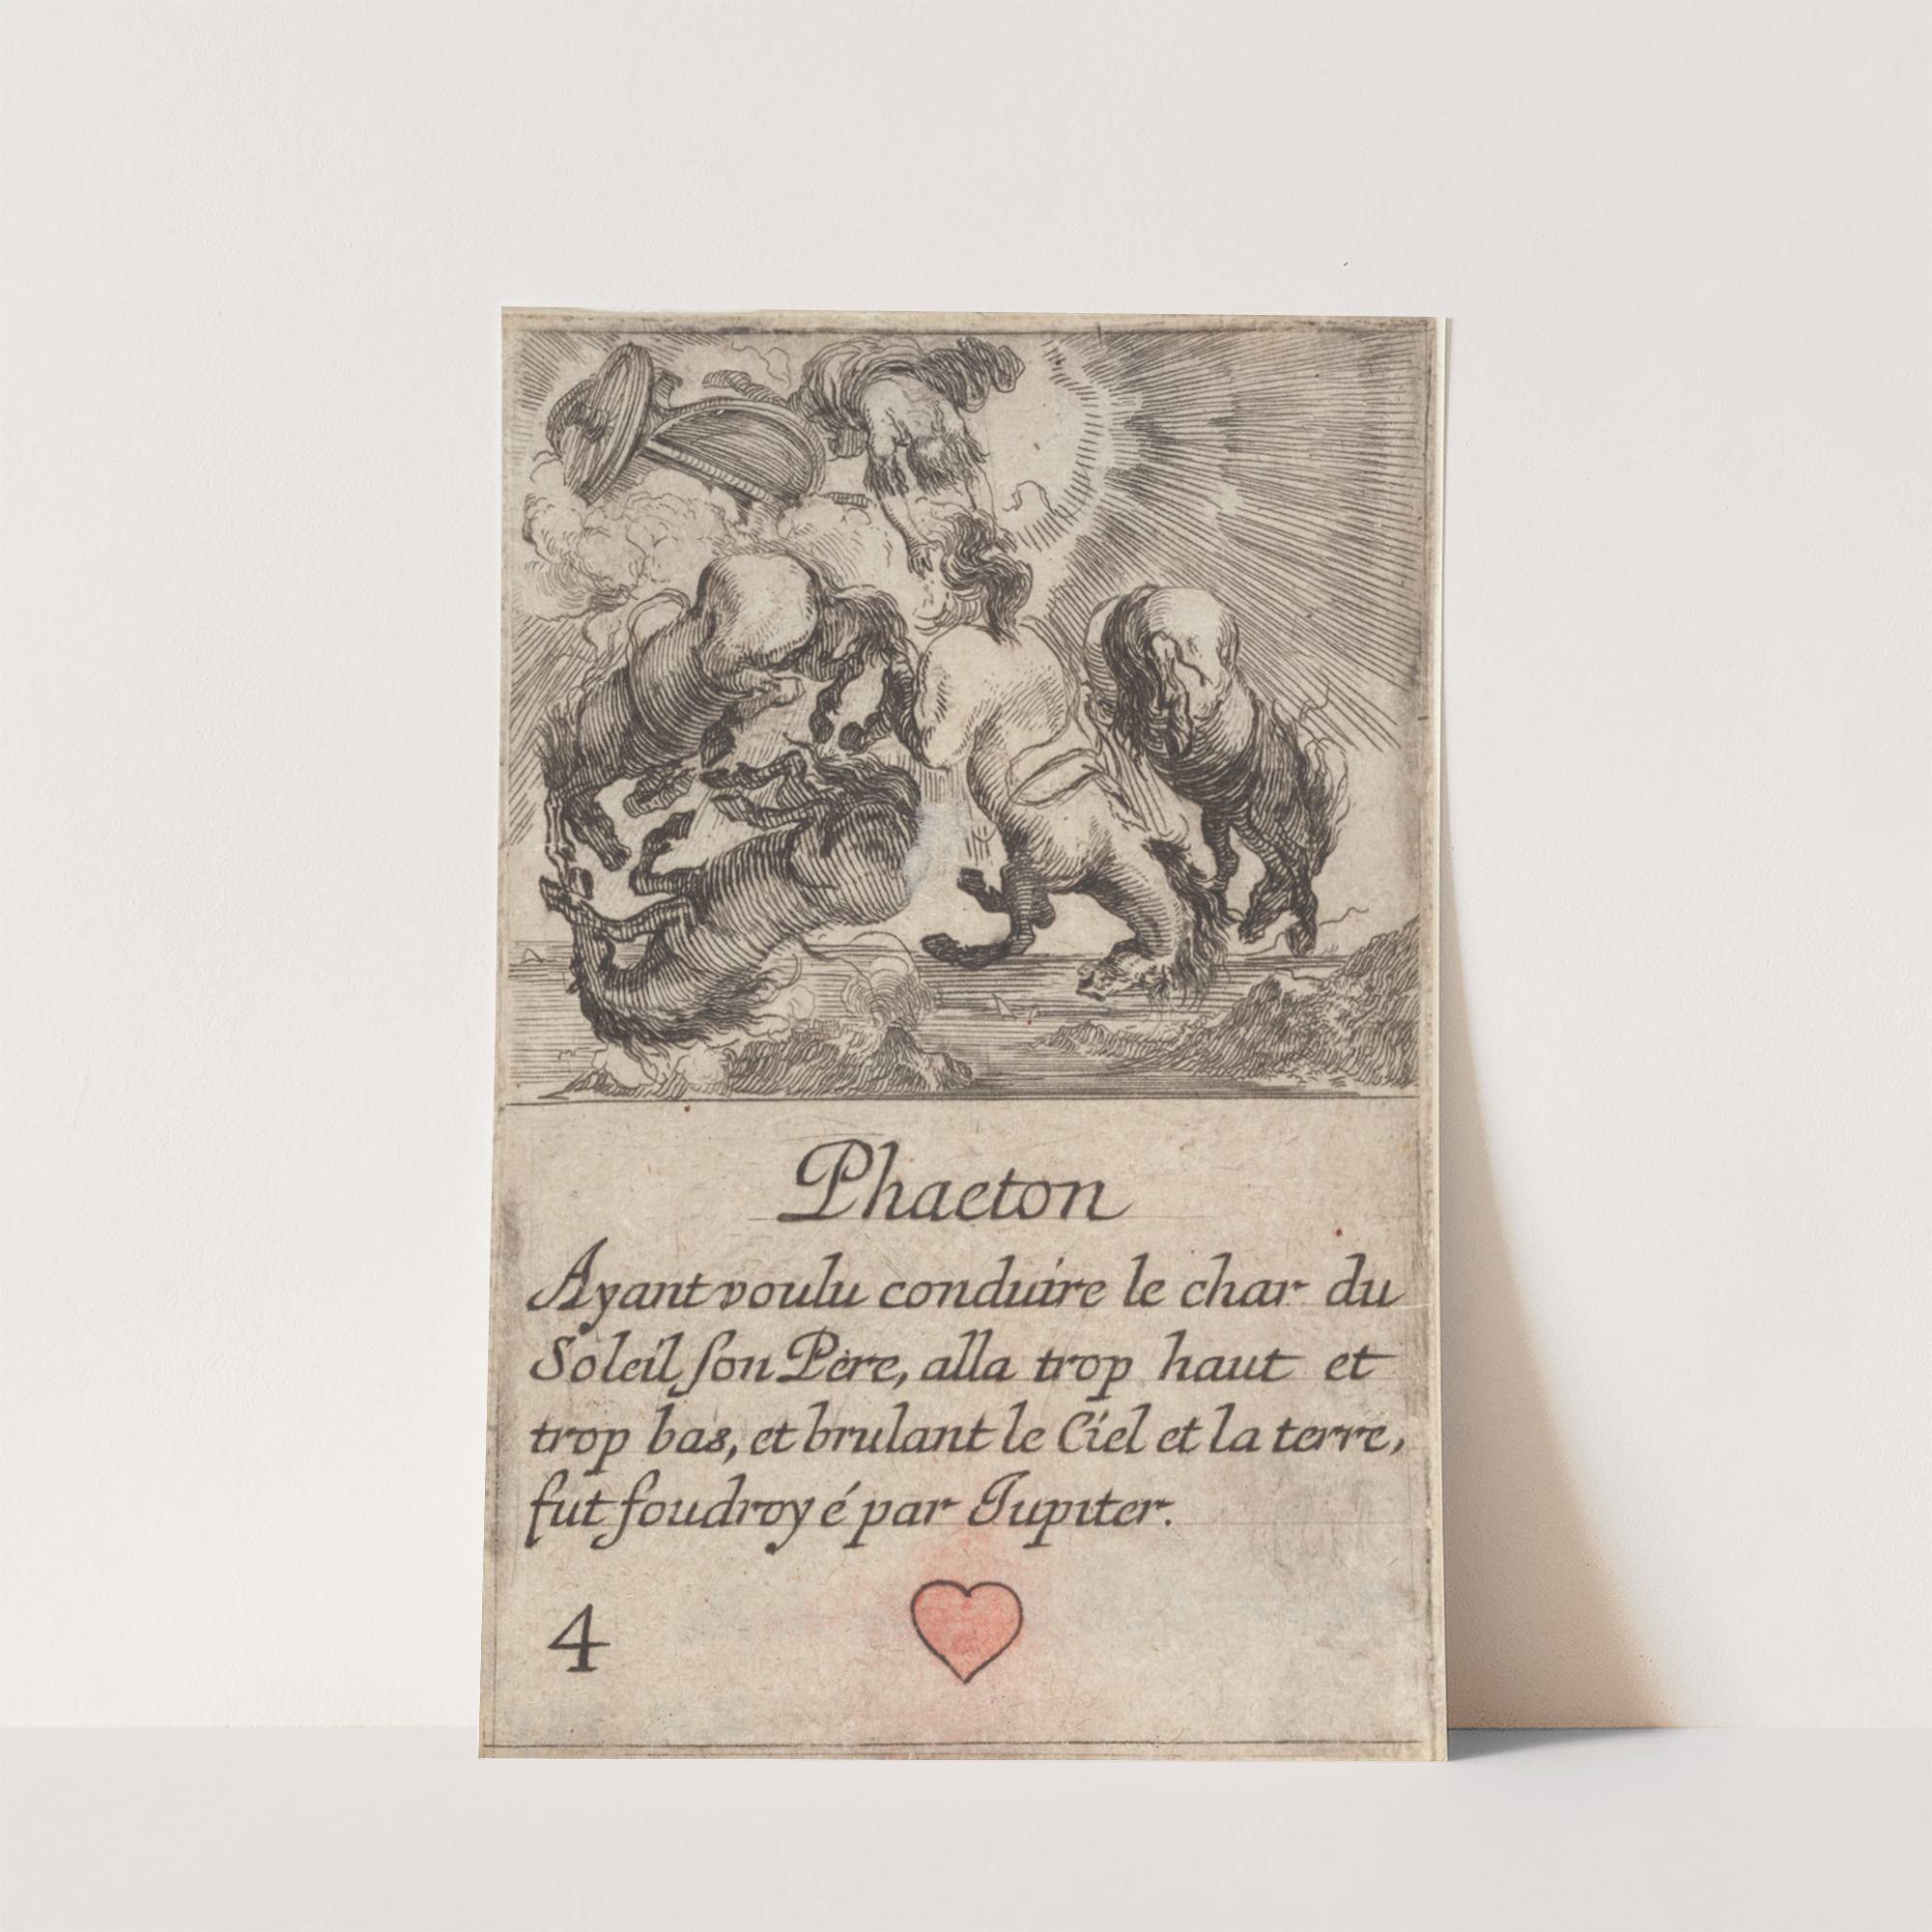 Phaeton
Ayant voulu conduire le char du
Soleil ſon Père, alla trop haut et
trop bas, et brulant le Ciel et la terre,
fut foudroyé par Iupiter.
4